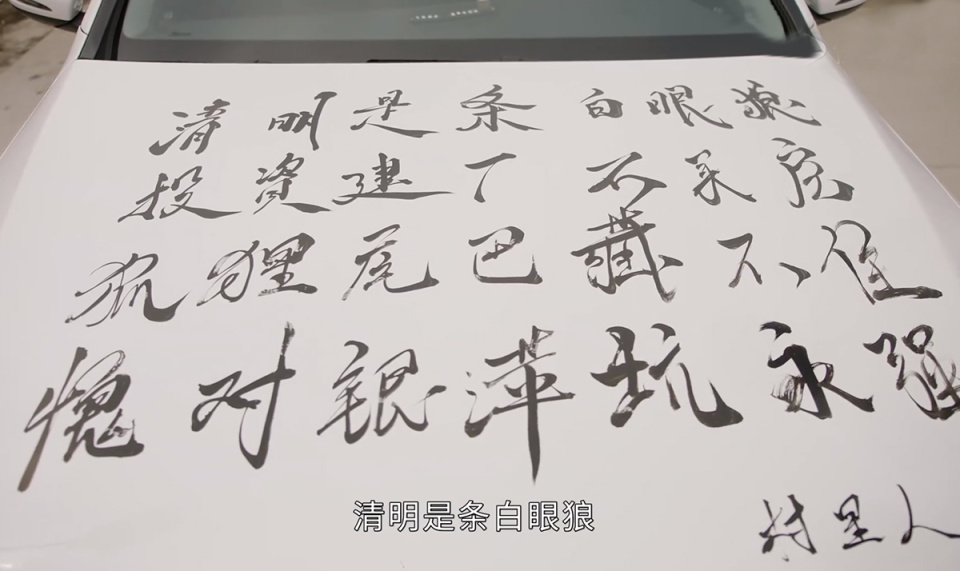 清明是条白眼狼
投資建厂不采
狐狸尾巴藏不住
愧对银萍坑永强
村里人
清明是条白眼狼